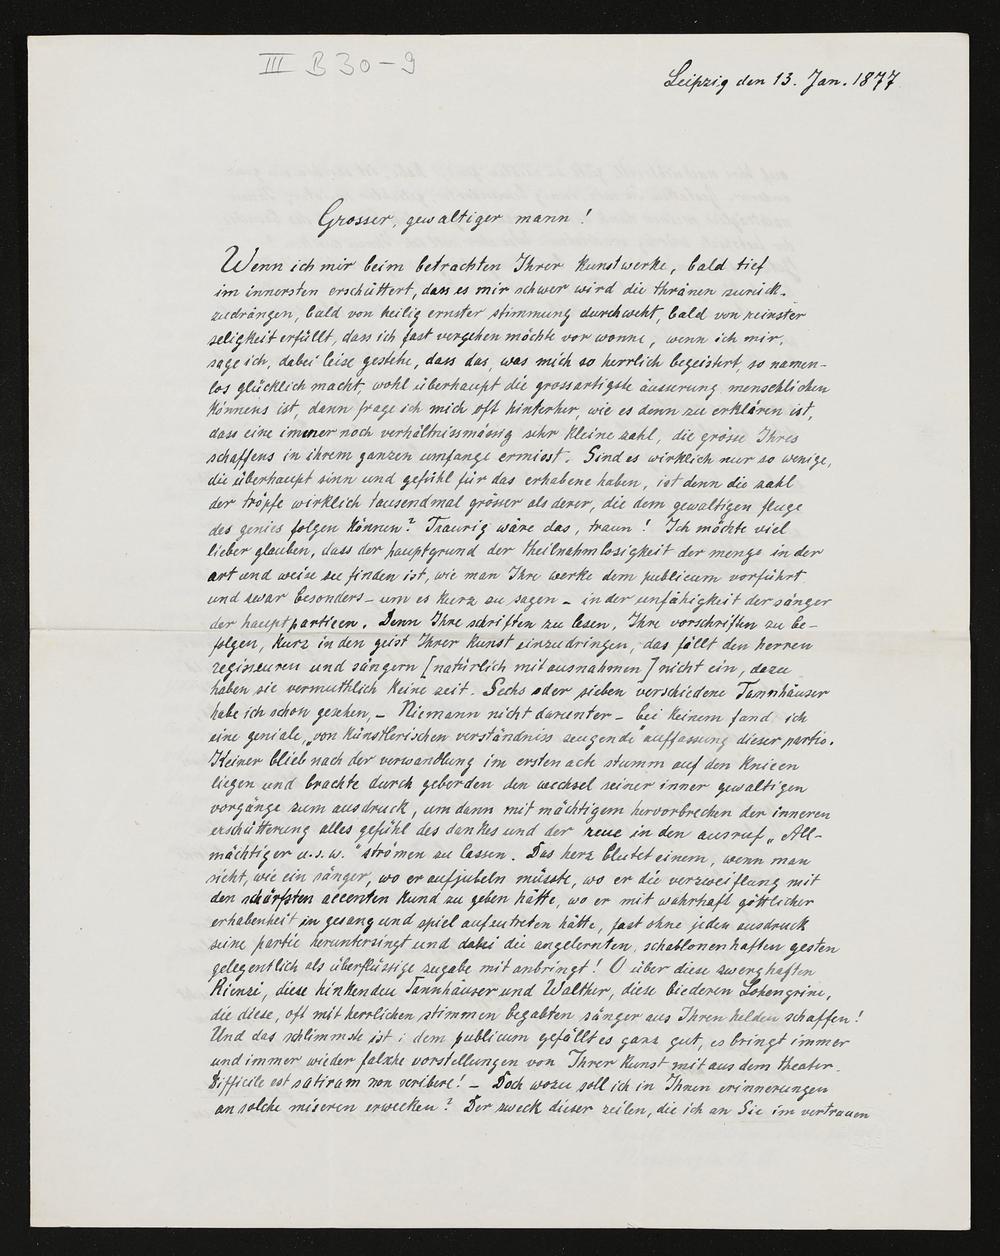 III B 30-9
Leipzig den 13. Jan. 1877
Grosser, gewaltiger mann!
Wenn ich mir beim betrachten Ihrer kunstwerke, bald tief
im innersten erschüttert, dass es mir schwer wird die thränen zurück-
zudrängen, bald von heilig ernster stimmung durchweht, bald von reinster
seligkeit erfüllt, dass ich fast vergehen möchte vor wonne, wenn ich mir,
sage ich, dabei leise gestehe, dass das, was mich so herrlich begeistert, so namen-
los glücklich macht, wohl überhaupt die grossartigste äusserung menschlichen
könnens ist, dann frage ich mich oft hinterher, wie es denn zu erklären ist,
dass eine immer noch verhältnissmässig sehr kleine zahl, die grösse Ihres
schaffens in ihrem ganzen umfange ermisst. Sind es wirklich nur so wenige,
die überhaupt sinn und gefühl für das erhabene haben, ist denn die zahl
der tröpfe wirklich tausendmal grösser als derer, die dem gewaltigen fluge
des genies folgen können? Traurig wäre das, traun! Ich möchte viel
lieber glauben, dass der hauptgrund der theilnahmlosigkeit der menge in der
art und weise zu finden ist, wie man Ihre werke dem publicum vorführt
und zwar besonders - um es kurz zu sagen - in der unfähigkeit der sänger
der hauptpartieen. Denn Ihre schriften zu lesen, Ihre vorschriften zu be-
folgen, kurz in den geist Ihrer kunst einzudringen, das fällt den herren
regisseuren und sängern [natürlich mit ausnahmen] nicht ein, dazu
haben sie vermuthlich keine zeit. Sechs oder sieben verschiedene Tannhäuser
habe ich schon gesehen, - Niemann nicht darunter - bei keinem fand ich
eine geniale, von künstlerischen verständniss zeugende auffassung dieser partie.
Keiner blieb nach der verwandlung im ersten act stumm auf den knieen
liegen und brachte durch geberden den wechsel seiner inner gewaltigen
vorgänge zum ausdruck, um dann mit mächtigem hervorbrechen der inneren
erschütterung alles gefühl des dankes und der reue in den ausruf „All-
mächtiger u.s.w." strömen zu lassen. Das herz blutet einem, wenn man
sieht, wie ein sänger, wo er aufjubeln müsste, wo er die verzweiflung mit
den schärfsten accenten kund zu geben hätte, wo er mit wahrhaft göttlicher
erhabenheit in gesang und spiel aufzutreten hätte, fast ohne jeden ausdruck
seine partie heruntersingt und dabei die angelernten, schablonenhaften gesten
gelegentlich als überflüssige zugabe mit anbringt! O über diese zwerghaften
Rienzi, diese hinkenden Tannhäuser und Walther, diese biederen Lohengrine,
die diese, oft mit herrlichen stimmen begabten sänger aus Ihren helden schaffen!
Und das schlimmste ist: dem publicum gefällt es ganz gut, es bringt immer
und immer wieder falsche vorstellungen von Ihrer kunst mit aus dem theater.
Difficile est satiram non scribere! - Doch wozu soll ich in Ihnen erinnerungen
an solche miseren erwecken? Der zweck dieser zeilen, die ich an Sie im vertrauen